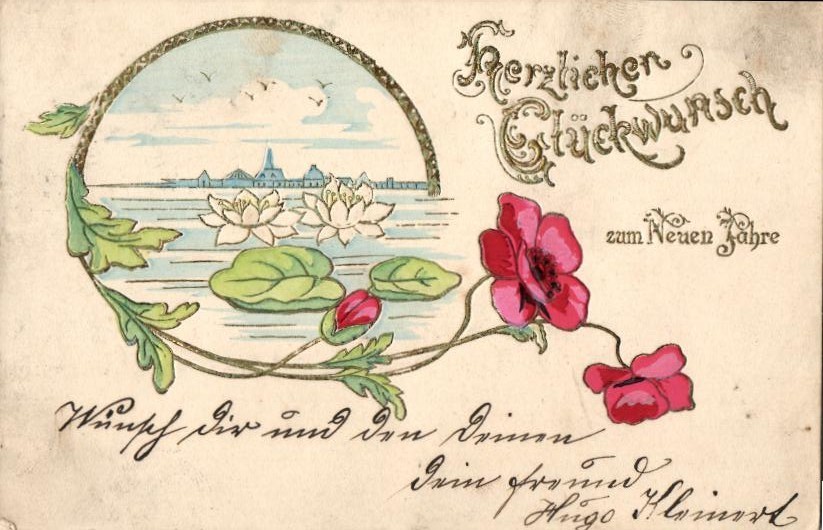 Herzlichen
Glückwunsch
zum Neuen Jahre
Wunsch dir und den Deinen
dein freund
Hugo Kleinert